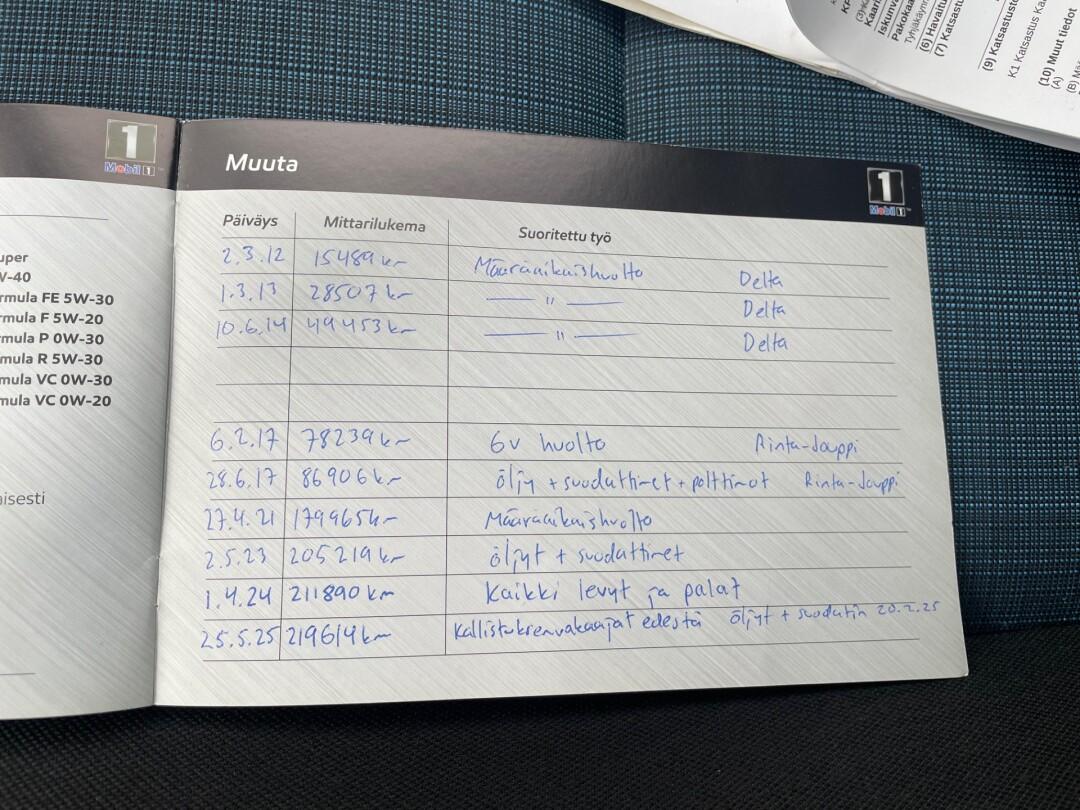 1
Mobil 1
uper
W-40
rmula FE 5W-30
rmula F 5W-20
rmula P 0W-30
mula R 5W-30
mula VC 0W-30
mula VC 0W-20
aisesti
Muuta
1
Mobil 1
Päiväys Mittarilukema Suoritettu työ
2.3.12 15489 km Määräaikaishuolto Delta
1.3.13 28507 km —— " —— Delta
10.6.14 49453 km —— " —— Delta
6.2.17 78239 km 6v huolto Rinta-Jouppi
28.6.17 86906 km öljy + suodattimet + polttimot Rinta-Jouppi
27.4.21 179965 km Määräaikaishuolto
2.5.23 205219 km öljyt + suodattimet
1.4.24 211890 km Kaikki levyt ja palat
25.5.25 219614 km Kallistuksenvakaajat edestä öljyt + suodatin 20.2.25
Kaari
Iskunva
Pakokaa
Tyhjäkäynn
(6) Havaitu
(7) Katsastu
(9) Katsastusto
K1 Katsastus Ka
(10) Muut tiedot
(A)